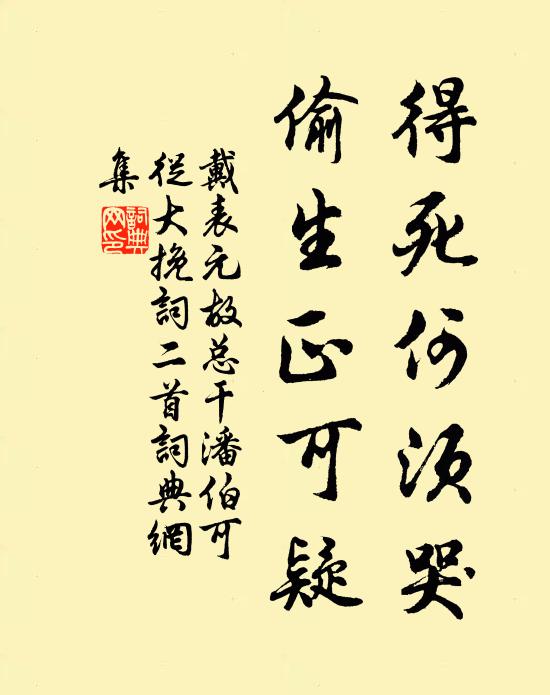 得死何须哭
偷生正可疑
戴表元故总干潘伯可
從大挽詞二首詞典網
集
詞典
网印